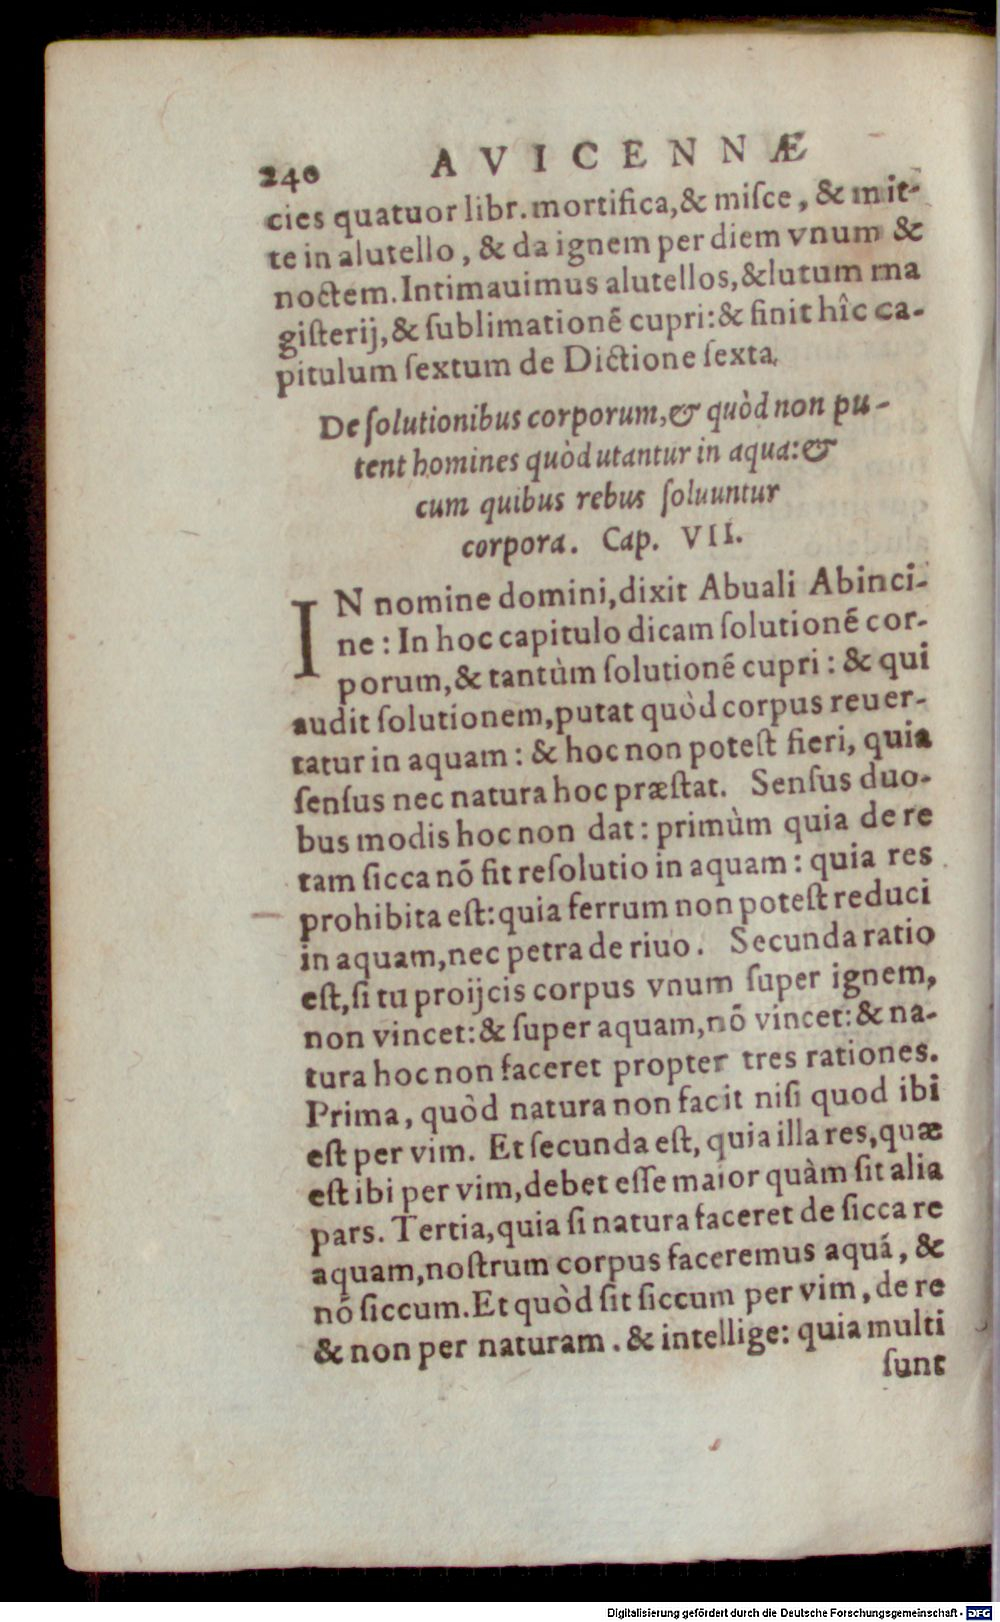 240 AVICENNÆ
cies quatuor libr. mortifica, & miſce, & mit-
te in alutello, & da ignem per diem vnum &
noctem. Intimauimus alutellos, & lutum ma
giſterij, & ſublimationẽ cupri: & finit hîc ca-
pitulum ſextum de Dictione ſexta.
De ſolutionibus corporum, & quòd non pu-
tent homines quòd utantur in aqua: &
cum quibus rebus ſoluuntur
corpora. Cap. VII.
IN nomine domini, dixit Abuali Abinci-
ne: In hoc capitulo dicam ſolutionẽ cor-
porum, & tantùm ſolutionẽ cupri: & qui
audit ſolutionem, putat quòd corpus reuer-
tatur in aquam: & hoc non poteſt fieri, quia
ſenſus nec natura hoc præſtat. Senſus duo-
bus modis hoc non dat: primùm quia de re
tam ſicca nõ fit reſolutio in aquam: quia res
prohibita eſt: quia ferrum non poteſt reduci
in aquam, nec petra de riuo. Secunda ratio
eſt, ſi tu proijcis corpus vnum ſuper ignem,
non vincet: & ſuper aquam, nõ vincet: & na-
tura hoc non faceret propter tres rationes.
Prima, quòd natura non facit niſi quod ibi
eſt per vim. Et ſecunda eſt, quia illa res, quæ
eſt ibi per vim, debet eſſe maior quàm ſit alia
pars. Tertia, quia ſi natura faceret de ſicca re
aquam, noſtrum corpus faceremus aquã, &
nõ ſiccum. Et quòd ſit ſiccum per vim, de re
& non per naturam. & intellige: quia multi
ſunt
Digitalisierung gefördert durch die Deutsche Forschungsgemeinschaft - DFG